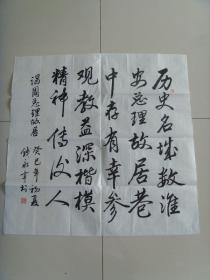 历史名城数淮
安总理故居巷
中存有幸参
观教益深楷模
精神传后人
谒周总理故居
癸巳年初夏